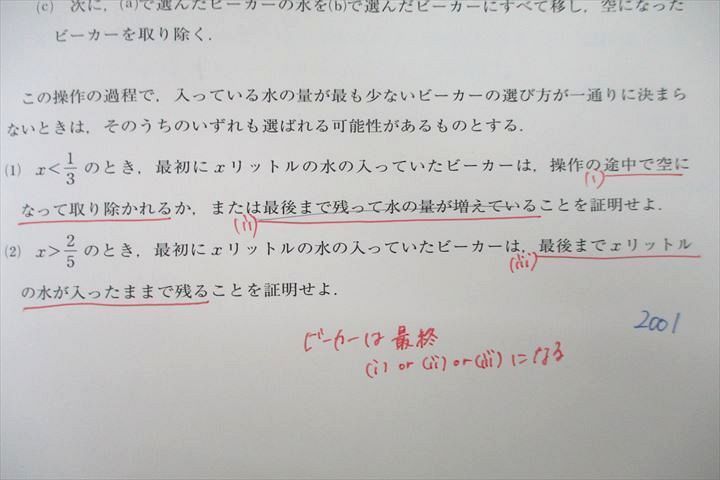 (c) 次に,(a)で選んだビーカーの水を(b)で選んだビーカーにすべて移し,空になった
ビーカーを取り除く.
この操作の過程で,入っている水の量が最も少ないビーカーの選び方が一通りに決まら
ないときは,そのうちのいずれも選ばれる可能性があるものとする.
(1) x<1/3 のとき,最初にxリットルの水の入っていたビーカーは,操作の途中で空に
(i)
なって取り除かれるか,または最後まで残って水の量が増えていることを証明せよ.
(ii)
(2) x>2/5 のとき,最初にxリットルの水の入っていたビーカーは,最後までxリットル
(iii)
の水が入ったままで残ることを証明せよ.
2001
ビーカーは最終
(i) or (ii) or (iii) になる